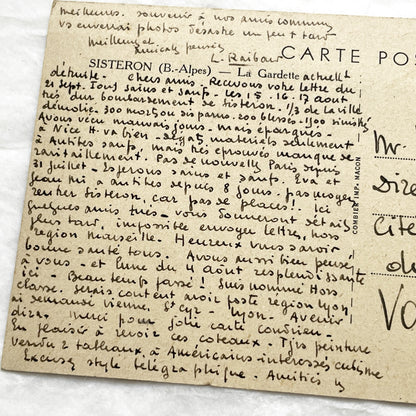 meilleurs. souvenir à nos amis communs
vs enverrai photos désastre un peu + tard
meilleures et
amicales pensées
L. Raibaud
CARTE POS
SISTERON (B.-Alpes) — La Gardette actuellt
détruite. - chers amis. Recevons votre lettre du
21 sept. Tous sains et saufs. les 15. 16. 17 août
du bombardement de Sisteron. 1/3 de la ville
démolie. 300 morts ou disparus. 200 blessés - 1500 sinistrés
Avons vécu mauvais jours. mais épargnés.
à Nice H. va bien - dégats matériels seulement
à Antibes sauf, mais très éprouvés manque de
ravitaillement. Pas de nouvelles Paris depuis
31 juillet - Espérons sains et saufs. Eva et
Jean Mi à Antibes depuis 8 jours. pas moyen
rentrer Sisteron, car pas de places! ici
quelques amis tués - vous donnerons détails
plus tard, impossible envoyer lettre, hors
région Marseille. Heureux vous savoir
bonne santé tous. Avons aussi bien pensé
à vous - et lune du 4 août resplendissante
ici - Beau temps passé! Suis nommé Hors
classe. serais content avoir poste région Lyon
ai demandé Vienne. St Cyr - Lyon - Avenir
dira. Merci pour jolie carte Condrieu.
En plaisir à revoir ces coteaux - Tjrs peinture
vendu 2 tableaux à Américains intéressés cubisme
Excusez style télégraphique. Amitiés
COMBIER IMP. MACON
Mr
Dire
Cité
du
Va